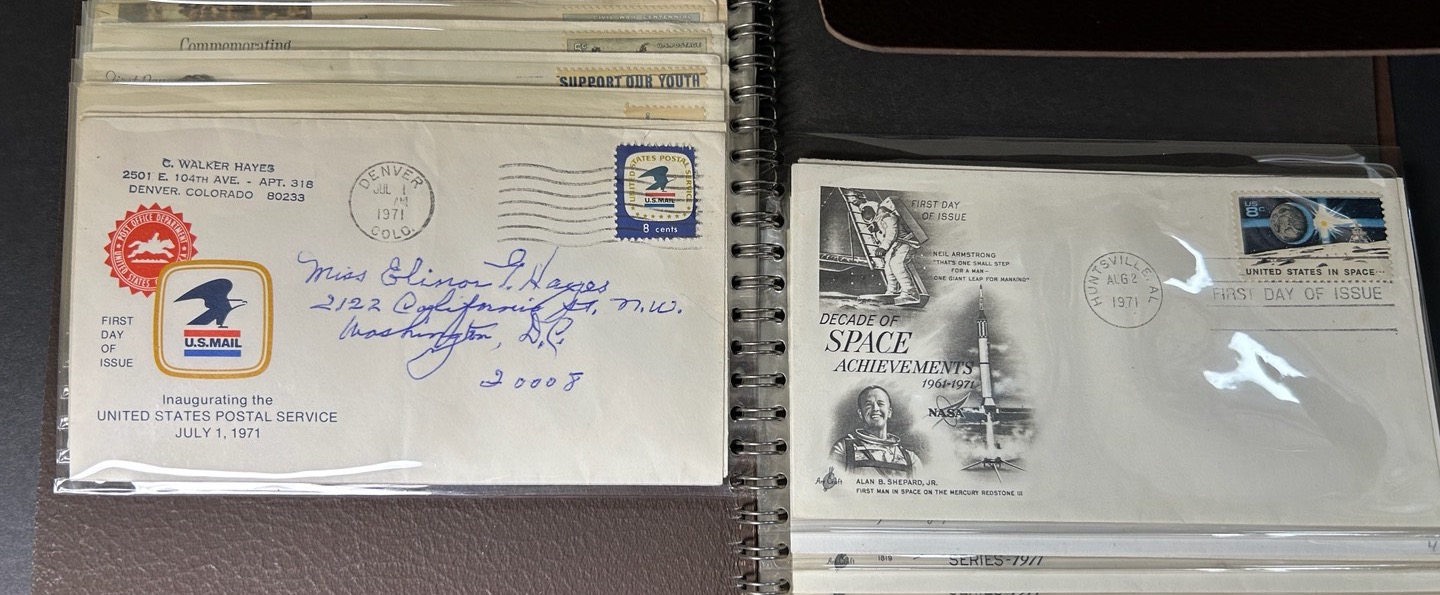 CIVIL WAR CENTENNIAL
Commemorating
5¢
SUPPORT OUR YOUTH
C. WALKER HAYES
2501 E. 104TH AVE. - APT. 318
DENVER, COLORADO 80233
POST OFFICE DEPARTMENT
UNITED STATES
DENVER
JUL 1
AM
1971
COLO.
UNITED STATES POSTAL SERVICE
U.S.MAIL
8 cents
Miss Elinor T. Hayes
2122 California St. N.W.
Washington, D.C.
20008
FIRST
DAY
OF
ISSUE
U.S.MAIL
Inaugurating the
UNITED STATES POSTAL SERVICE
JULY 1, 1971
FIRST DAY
OF ISSUE
NEIL ARMSTRONG
"THAT'S ONE SMALL STEP
FOR A MAN—
ONE GIANT LEAP FOR MANKIND"
DECADE OF
SPACE
ACHIEVEMENTS
1961-1971
NASA
Art Craft
ALAN B. SHEPARD, JR.
FIRST MAN IN SPACE ON THE MERCURY REDSTONE III
HUNTSVILLE, AL
AUG 2
1971
US
8c
UNITED STATES IN SPACE...
FIRST DAY OF ISSUE
Art Craft
1819
SERIES-1971